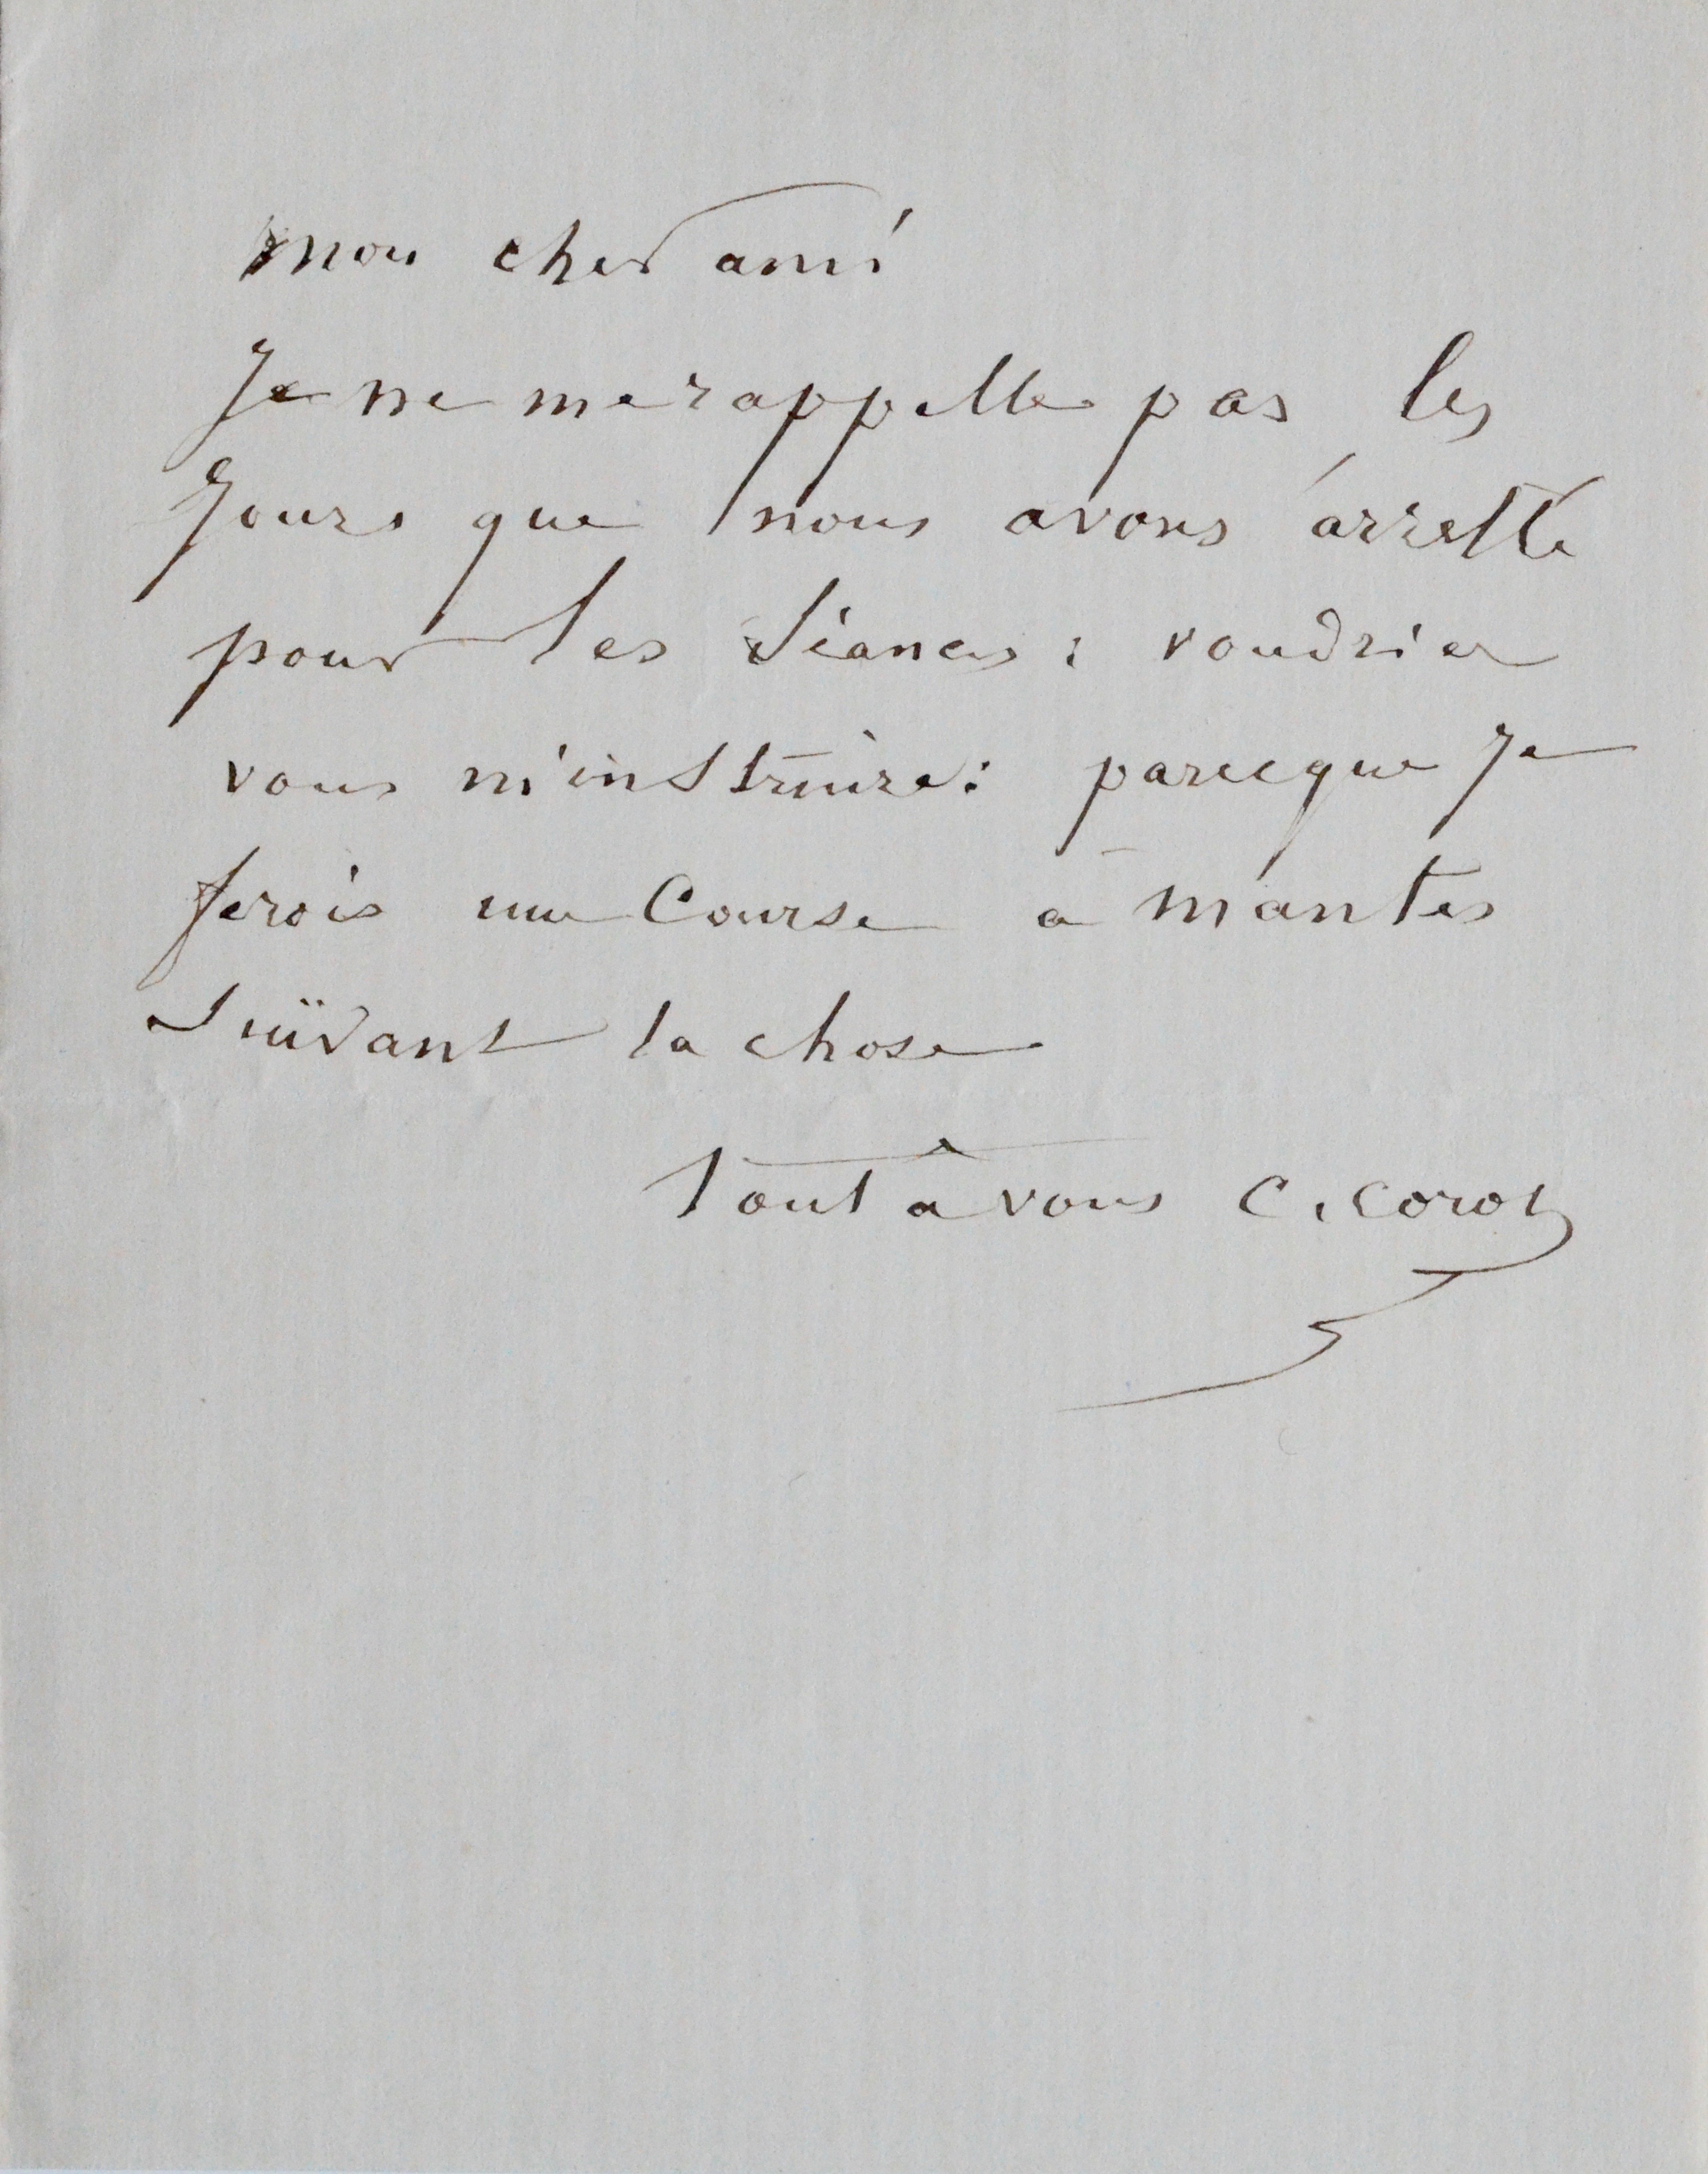 mon cher ami
Je ne me rappelle pas les
Jours que nous avons arretté
pour les Séances : voudriez
vous m'instruire : parceque Je
ferois une Course à mantes
Suivant la chose
tout à vous C. Corot